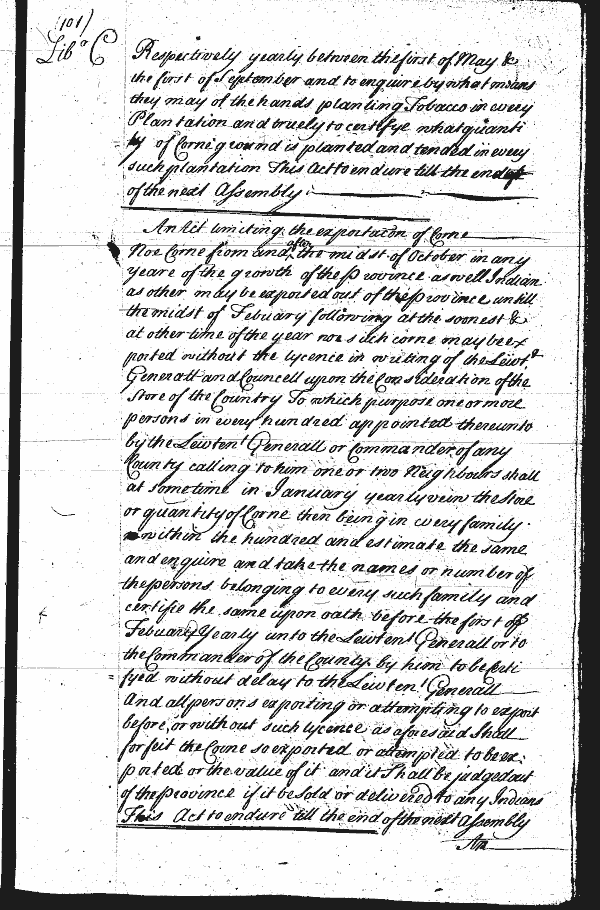 (101)
Lib.º C
Respectively yearly between the first of May &
the first of September and to enquire by what means
they may of the hands planting Tobacco in every
Plantation and truely to certifye what quanti
ty of Corne ground is planted and tended in every
such plantation This Act to endure till the end of
of the next Assembly
An Act limiting the exportacon of Corne
Noe Corne from and after the midst of October in any
yeare of the growth of the province as well Indian
as other may be exported out of the province untill
the midst of Febuary following at the soonest &
at other time of the year noe such corne may be ex
ported without the lycence in writing of the Lewt.t
Generall and Councell upon the Consideration of the
Store of the Country To which purpose one or more
persons in every hundred appointed thereunto
by the Lewten.t Generall or Commander of any
County calling to him one or two Neighbours shall
at some time in January yearly veiw the store
or quantity of Corne then being in every family
within the hundred and estimate the same
and enquire and take the names or number of
the persons belonging to every such family and
certifie the same upon oath before the first of
Febuary Yearly unto the Lewten.t Generall or to
the Commander of the County by him to be certi
fyed without delay to the Lewten.t Generall
And all persons exporting or attempting to export
before, or without such lycence as aforesaid Shall
forfeit the Corne so exported or attempted to be ex
ported or the value of it and it Shall be judged out
of the province if it be sold or delivered to any Indians
This Act to endure till the end of the next Assembly
An